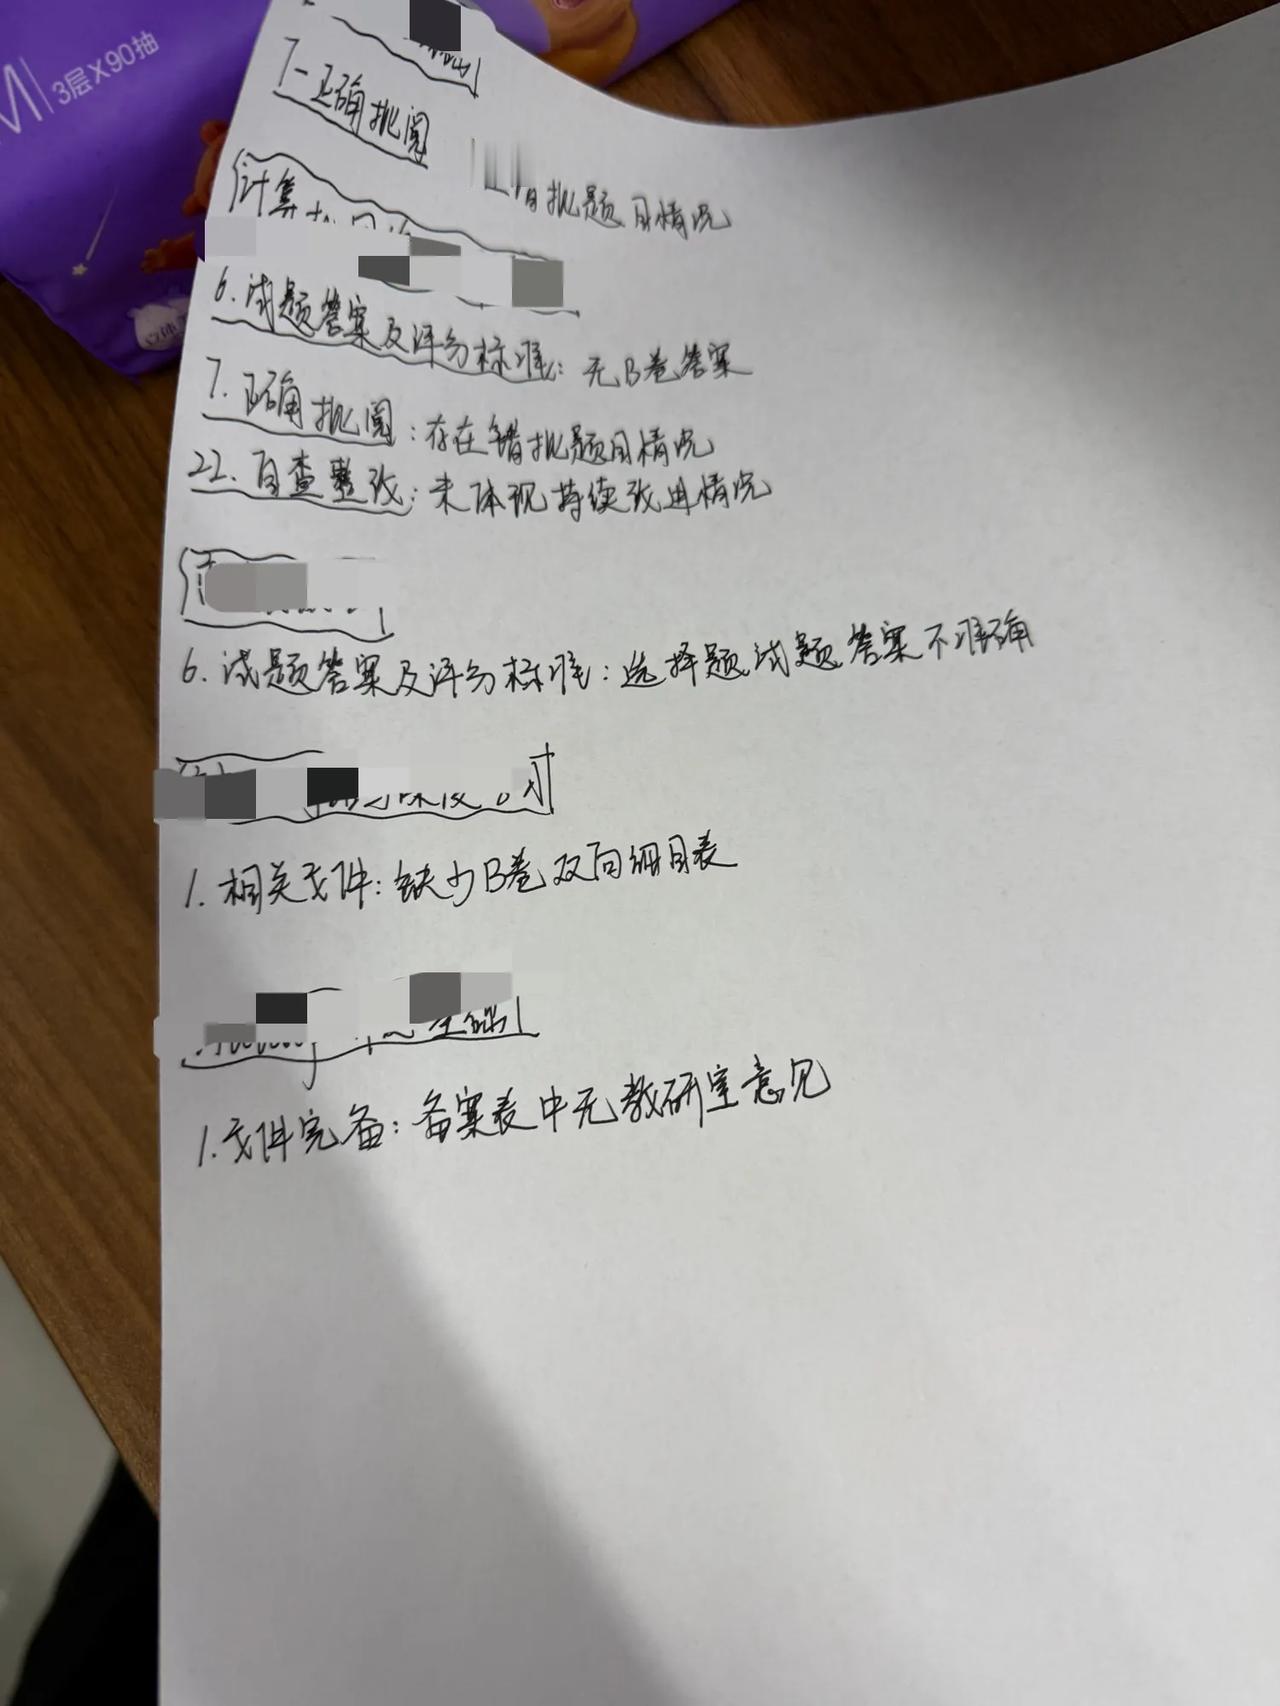 3层X90抽
7-正确批阅 错批题目情况
计算
6.试题答案及评分标准：无B卷答案
7.正确批阅：存在错批题目情况
22.自查整改：未体现持续改进情况
6.试题答案及评分标准：选择题试题答案不准确
1.相关文件：缺少B卷双向细目表
1.文件完备：备案表中无教研室意见